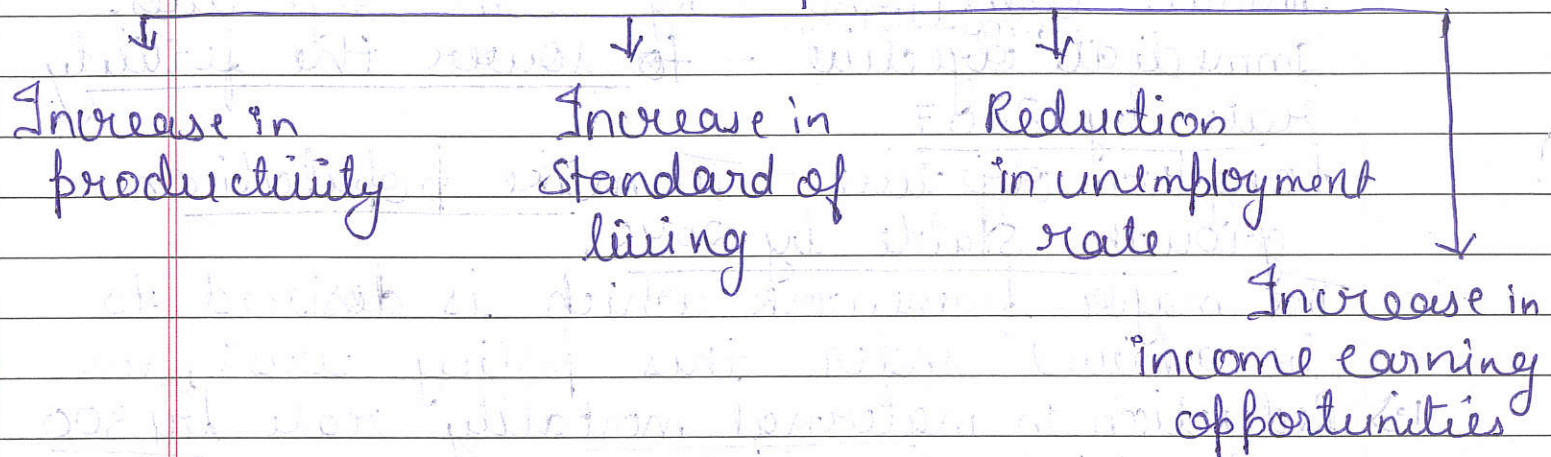 Increase in
productivity
Increase in
standard of
living
Reduction
in unemployment
rate
Increase in
income earning
opportunities